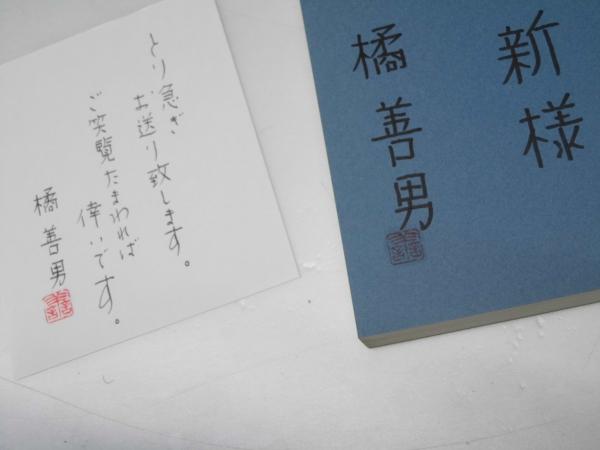 とり急ぎ
お送り致します。
ご笑覧たまわれば
倖いです。
橘善男
新様
橘善男